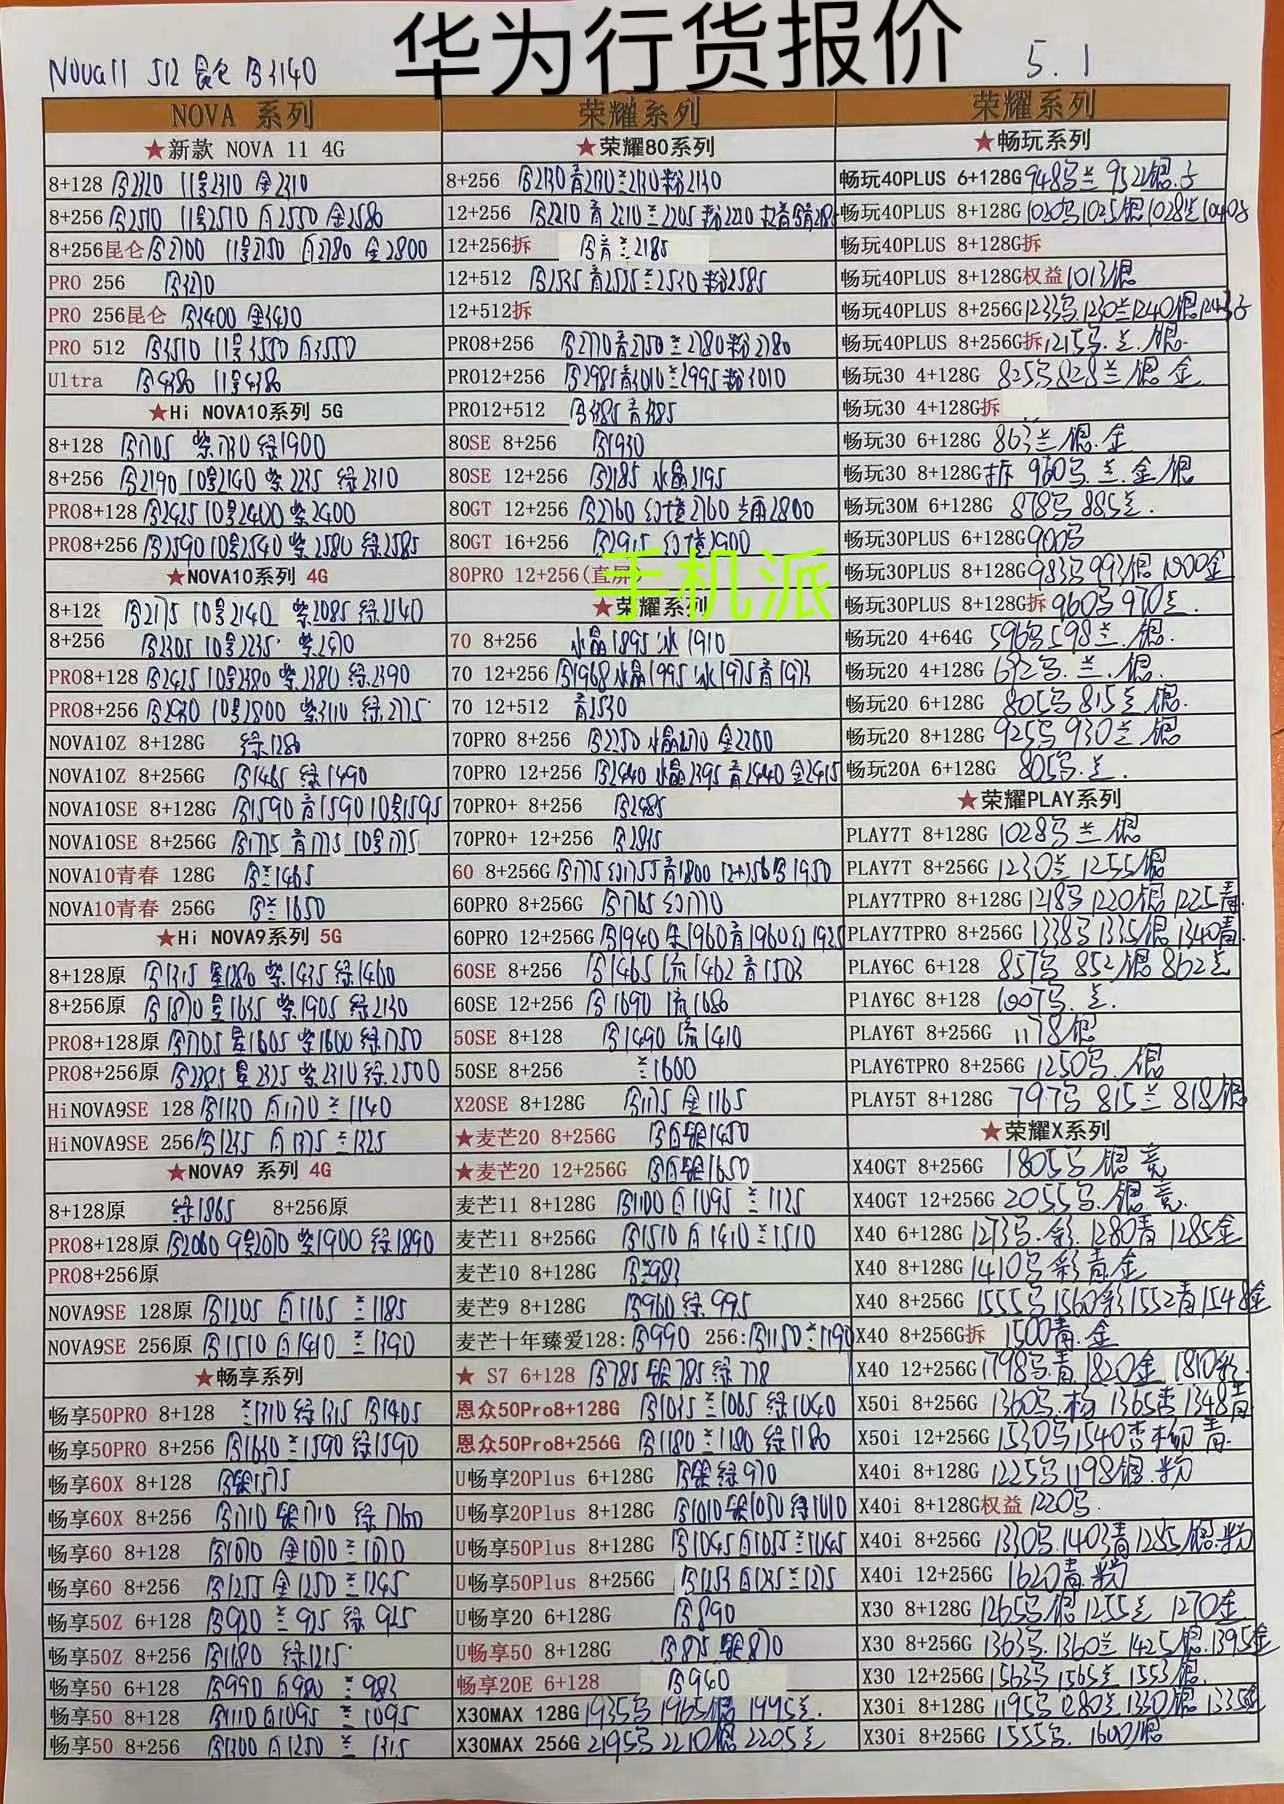 华为行货报价
Nova11 512 昆仑 黑3140
5.1
NOVA 系列
★新款 NOVA 11 4G
8+128 黑2320 11号2310 金2310
8+256 黑2510 11号2510 白2550 金2580
8+256昆仑 黑2700 11号2750 白2780 金2800
PRO 256
PRO 256昆仑 黑3400
PRO 512 黑3510 11号3550 白3550
Ultra 黑4380 11号4380
★Hi NOVA10系列 5G
8+128 黑1705 紫1730 绿1900
8+256 黑2190 10号2140 紫2235 绿2310
PRO8+128 黑2425 10号2400 紫2400
PRO8+256 黑2590 10号2540 紫2580 绿2585
★NOVA10系列 4G
8+128 黑2175 10号2140 紫2085 绿2140
8+256 黑2305 10号2235
PRO8+128 黑2425 10号2380 紫2380 绿2390
PRO8+256 黑2930 10号2800 紫3110 绿2775
NOVA10Z 8+128G 绿1280
NOVA10Z 8+256G 黑1465 绿1490
NOVA10SE 8+128G 黑1590 青1590 10号1595
NOVA10SE 8+256G 黑1775 青1775 10号1775
NOVA10青春 128G 黑兰1465
NOVA10青春 256G 黑兰1650
★Hi NOVA9系列 5G
8+128原 黑1315 星1280 紫1435 绿1460
8+256原 黑1870 星1635 紫1905 绿2130
PRO8+128原 黑1705 星1605 紫1600 绿1750
PRO8+256原 黑2285 星2325 紫2310 绿2500
HiNOVA9SE 128 黑1130 白1170 兰1140
HiNOVA9SE 256 黑1235 白1375 兰1325
★NOVA9 系列 4G
8+128原 绿1865 8+256原
PRO8+128原 黑2060 9号2070 紫1900 绿1890
PRO8+256原
NOVA9SE 128原 黑1205 白1165 兰1185
NOVA9SE 256原 黑1510 白1410 兰1390
★畅享系列
畅享50PRO 8+128 兰1310 绿1315 黑1405
畅享50PRO 8+256 黑1630 兰1590 绿1590
畅享60X 8+128 黑银1575
畅享60X 8+256 黑1710 银1710 绿1760
畅享60 8+128 黑1070 金1070 兰1070
畅享60 8+256 黑1255 金1250 兰1245
畅享50Z 6+128 黑920 兰925 绿925
畅享50Z 8+256 黑1180 绿1215
畅享50 6+128 黑990 白980 兰983
畅享50 8+128 黑1110 白1095 兰1095
畅享50 8+256 黑1300 白1250 兰1315
荣耀系列
★荣耀80系列
8+256 黑2130 青2130 兰2130 粉2130
12+256 黑2210 青2210 兰2205 粉2220
12+256拆 黑青兰2185
12+512 黑2535 青2525 兰2530 粉2585
12+512拆
PRO8+256 黑2770 青2750 兰2780 粉2780
PRO12+256 黑2985 青3010 兰2995 粉3010
PRO12+512
80SE 8+256 黑1930
80SE 12+256 黑2185 水晶2195
80GT 12+256 黑2760 幻境2760
80GT 16+256 黑2915 幻境2900
80PRO 12+256(直屏)
手机派
★荣耀系列
70 8+256 水晶1895 冰1910
70 12+256 黑1968 水晶1995 冰1975 青1973
70 12+512 青2530
70PRO 8+256 黑2250
70PRO 12+256 黑2440 水晶2395 青2440 金2415
70PRO+ 8+256 黑2485
70PRO+ 12+256 黑2845
60 8+256G 黑1775 幻1755 青1800 12+256黑1950
60PRO 8+256G 黑1765 幻1770
60PRO 12+256G 黑1940 朱1960 青1960 幻1925
60SE 8+256 黑1465 流1462 青1503
60SE 12+256 黑1690 流1680
50SE 8+128 黑1490 流1410
50SE 8+256 兰1600
X20SE 8+128G 黑1175 金1165
★麦芒20 8+256G 黑白银1450
★麦芒20 12+256G 黑白银1650
麦芒11 8+128G 黑1100 白1095 兰1125
麦芒11 8+256G 黑1510 白1410 兰1510
麦芒10 8+128G 黑兰983
麦芒9 8+128G 黑960 绿995
麦芒十年臻爱128:黑990 256:黑1150 兰1190
★ S7 6+128 黑785 银785 绿778
恩众50Pro8+128G 黑1035 兰1065 绿1040
恩众50Pro8+256G 黑1180 兰1180 绿1180
U畅享20Plus 6+128G 黑银绿970
U畅享20Plus 8+128G 黑1010 银1050 绿1010
U畅享50Plus 8+128G 黑1045 白1055 兰1045
U畅享50Plus 8+256G 黑1253 白1235 兰1275
U畅享20 6+128G 黑890
U畅享50 8+128G 黑875 银870
畅享20E 6+128 黑940
X30MAX 128G 1935黑 1965银 1995兰.
X30MAX 256G 2195黑 2210银 2205兰
荣耀系列
★畅玩系列
畅玩40PLUS 6+128G 948黑兰 952银.
畅玩40PLUS 8+128G 1020黑1025银1028兰
畅玩40PLUS 8+128G拆
畅玩40PLUS 8+128G权益 1013银
畅玩40PLUS 8+256G 1233黑.1230兰1240银
畅玩40PLUS 8+256G拆 1215黑.兰.银.
畅玩30 4+128G 825黑828兰.银 金
畅玩30 4+128G拆
畅玩30 6+128G 863兰.银.金
畅玩30 8+128G拆 960黑.兰.金.银
畅玩30M 6+128G 878黑 885兰.
畅玩30PLUS 6+128G 900黑
畅玩30PLUS 8+128G 983黑 993银 1000金
畅玩30PLUS 8+128G拆 960黑 970兰.
畅玩20 4+64G 596黑598兰.银.
畅玩20 4+128G 692黑.兰.银.
畅玩20 6+128G 805黑815兰.银.
畅玩20 8+128G 925黑930兰.银
畅玩20A 6+128G 805黑.兰.
★荣耀PLAY系列
PLAY7T 8+128G 1028黑.兰.银
PLAY7T 8+256G 1230兰 1255银
PLAY7TPRO 8+128G 1218黑1220银1225青.
PLAY7TPRO 8+256G 1338黑1335银1340青.
PLAY6C 6+128 857黑 852银 862兰
PlAY6C 8+128 1007黑.兰.
PLAY6T 8+256G 1178银
PLAY6TPRO 8+256G 1250黑.银
PLAY5T 8+128G 797黑 815兰 818银
★荣耀X系列
X40GT 8+256G 1805黑.银.竞
X40GT 12+256G 2055黑.银.竞.
X40 6+128G 1273黑.彩.1280青1285金
X40 8+128G 1410黑彩青金
X40 8+256G 1555黑1560彩1552青1548金
X40 8+256G拆 1500青.金
X40 12+256G 1798黑.青1820金 1810彩.
X50i 8+256G 1360黑.柳 1365杏1348青
X50i 12+256G 1530黑1540杏柳青.
X40i 8+128G 1225黑1198银.粉
X40i 8+128G权益 1220黑.
X40i 8+256G 1330黑.1403青1285银.粉
X40i 12+256G 1620青.粉
X30 8+128G 1265黑银1255兰 1270金
X30 8+256G 1363黑.1360兰1425银.1395金
X30 12+256G 1563黑1565兰1553银.
X30i 8+128G 1195黑1280兰1330银1335金
X30i 8+256G 1555黑. 1600银